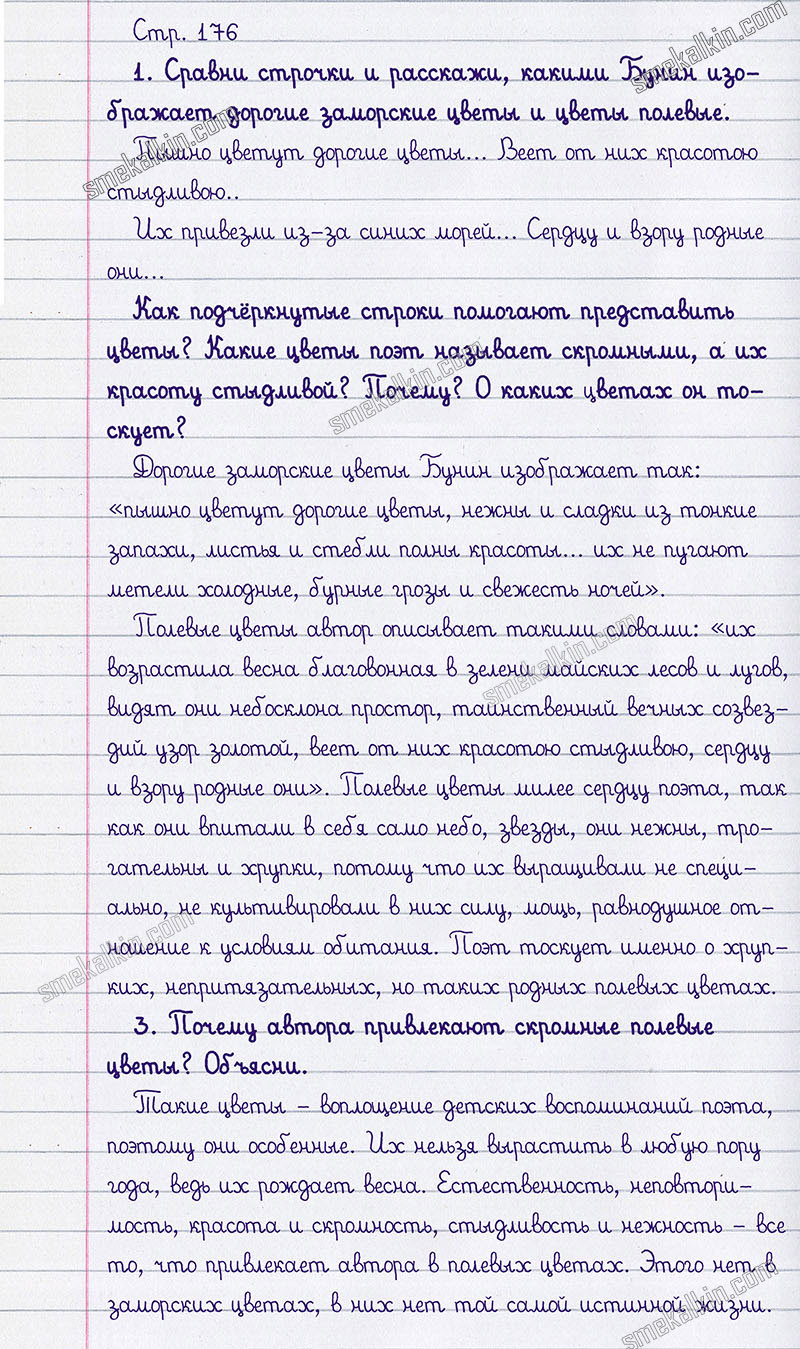 Стр. 176
1. Сравни строчки и расскажи, какими Бунин изо-
бражает дорогие заморские цветы и цветы полевые.
Пышно цветут дорогие цветы... Веет от них красотою
стыдливою..
Их привезли из-за синих морей... Сердцу и взору родные
они...
Как подчёркнутые строки помогают представить
цветы? Какие цветы поэт называет скромными, а их
красоту стыдливой? Почему? О каких цветах он то-
скует?
Дорогие заморские цветы Бунин изображает так:
«пышно цветут дорогие цветы, нежны и сладки из тонкие
запахи, листья и стебли полны красоты... их не пугают
метели холодные, бурные грозы и свежесть ночей».
Полевые цветы автор описывает такими словами: «их
возрастила весна благовонная в зелени майских лесов и лугов,
видят они небосклона простор, таинственный вечных созвез-
дий узор золотой, веет от них красотою стыдливою, сердцу
и взору родные они». Полевые цветы милее сердцу поэта, так
как они впитали в себя само небо, звезды, они нежны, тро-
гательны и хрупки, потому что их выращивали не специ-
ально, не культивировали в них силу, мощь, равнодушное от-
ношение к условиям обитания. Поэт тоскует именно о хруп-
ких, непритязательных, но таких родных полевых цветах.
3. Почему автора привлекают скромные полевые
цветы? Объясни.
Такие цветы – воплощение детских воспоминаний поэта,
поэтому они особенные. Их нельзя вырастить в любую пору
года, ведь их рождает весна. Естественность, неповтори-
мость, красота и скромность, стыдливость и нежность – все
то, что привлекает автора в полевых цветах. Этого нет в
заморских цветах, в них нет той самой истинной жизни.
smekalkin.com
smekalkin.com
smekalkin.com
smekalkin.com
smekalkin.com
smekalkin.com